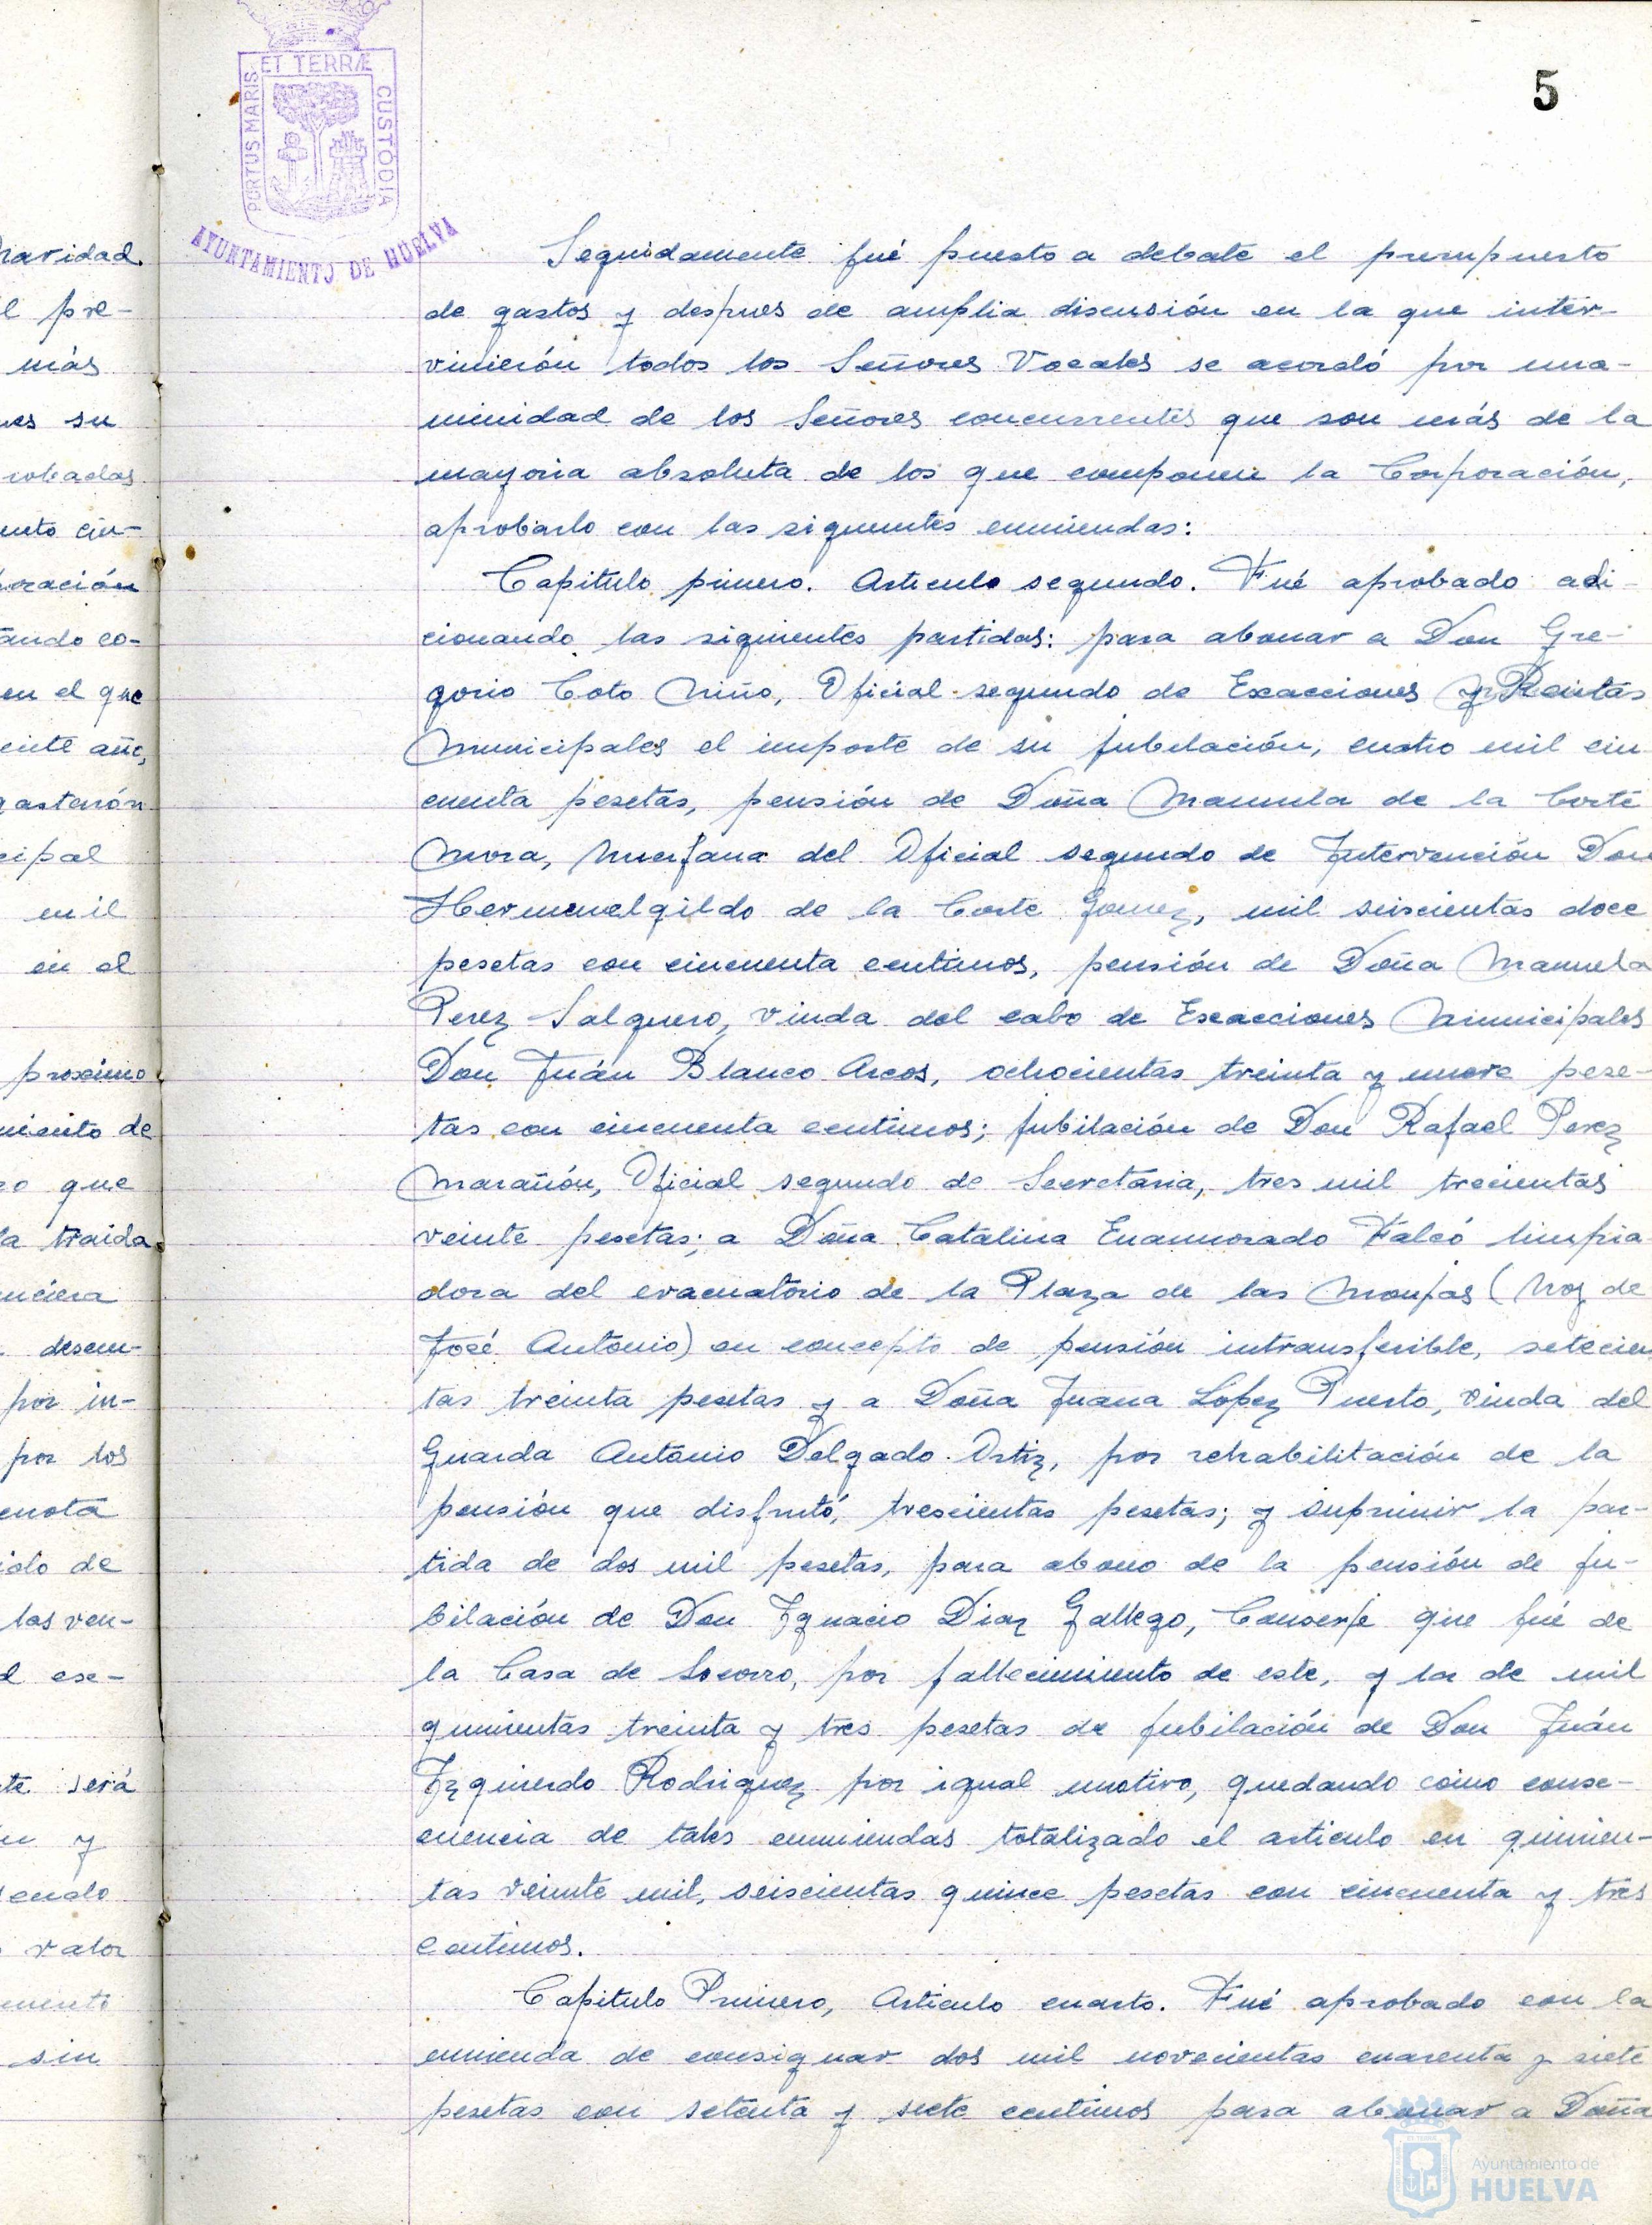 5
PORTUS MARIS ET TERRÆ CUSTODIA
AYUNTAMIENTO DE HUELVA
Seguidamente fué puesto a debate el presupuesto
de gastos y despues de amplia discusión en la que inter-
vinierón todos los Señores Vocales se acordó por una-
nimidad de los Señores concurrentes que son más de la
mayoria absoluta de los que componen la Corporación,
aprobarlo con las siguientes enmiendas:
Capitulo primero. Articulo segundo. Fué aprobado adi-
cionando las siguientes partidas: para abonar a Don Gre-
gorio Coto Niño, Oficial segundo de Exacciones y Rentas
Municipales el importe de su jubilación, cuatro mil cin
cuenta pesetas, pensión de Doña Manuela de la Corte
Mora, huerfana del Oficial segundo de Intervención Don
Hermenelgildo de la Corte Gomez, mil seiscientas doce
pesetas con cincuenta centimos, pensión de Doña Manuela
Perez Salguero, viuda del cabo de Exacciones Municipales
Don Juán Blanco Arcos, ochocientas treinta y nueve pese-
tas con cincuenta centimos; jubilación de Don Rafael Perez
Marañón, Oficial segundo de Secretaria, tres mil trecientas
veinte pesetas; a Doña Catalina Enamorado Falcó limpia
dora del evacuatorio de la Plaza de las Monjas (hoy de
José Antonio) en concepto de pensión intransferible, setecien
tas treinta pesetas y a Doña Juana Lopez Puerto, viuda del
Guarda Antonio Delgado Ortiz, por rehabilitación de la
pensión que disfrutó, trescientas pesetas; y suprimir la par-
tida de dos mil pesetas, para abono de la pensión de ju-
bilación de Don Ignacio Diaz Gallego, Conserje que fué de
la Casa de Socorro, por fallecimiento de este, y la de mil
quinientas treinta y tres pesetas de jubilación de Don Juán
Izquierdo Rodriguez por igual motivo, quedando como conse-
cuencia de tales enmiendas totalizado el articulo en quinien-
tas veinte mil, seiscientas quince pesetas con cincuenta y tres
centimos.
Capitulo Primero, Articulo cuarto. Fué aprobado con la
enmienda de consignar dos mil novecientas cuarenta y siete
pesetas con setenta y siete centimos para abonar a Doña
Ayuntamiento de
HUELVA